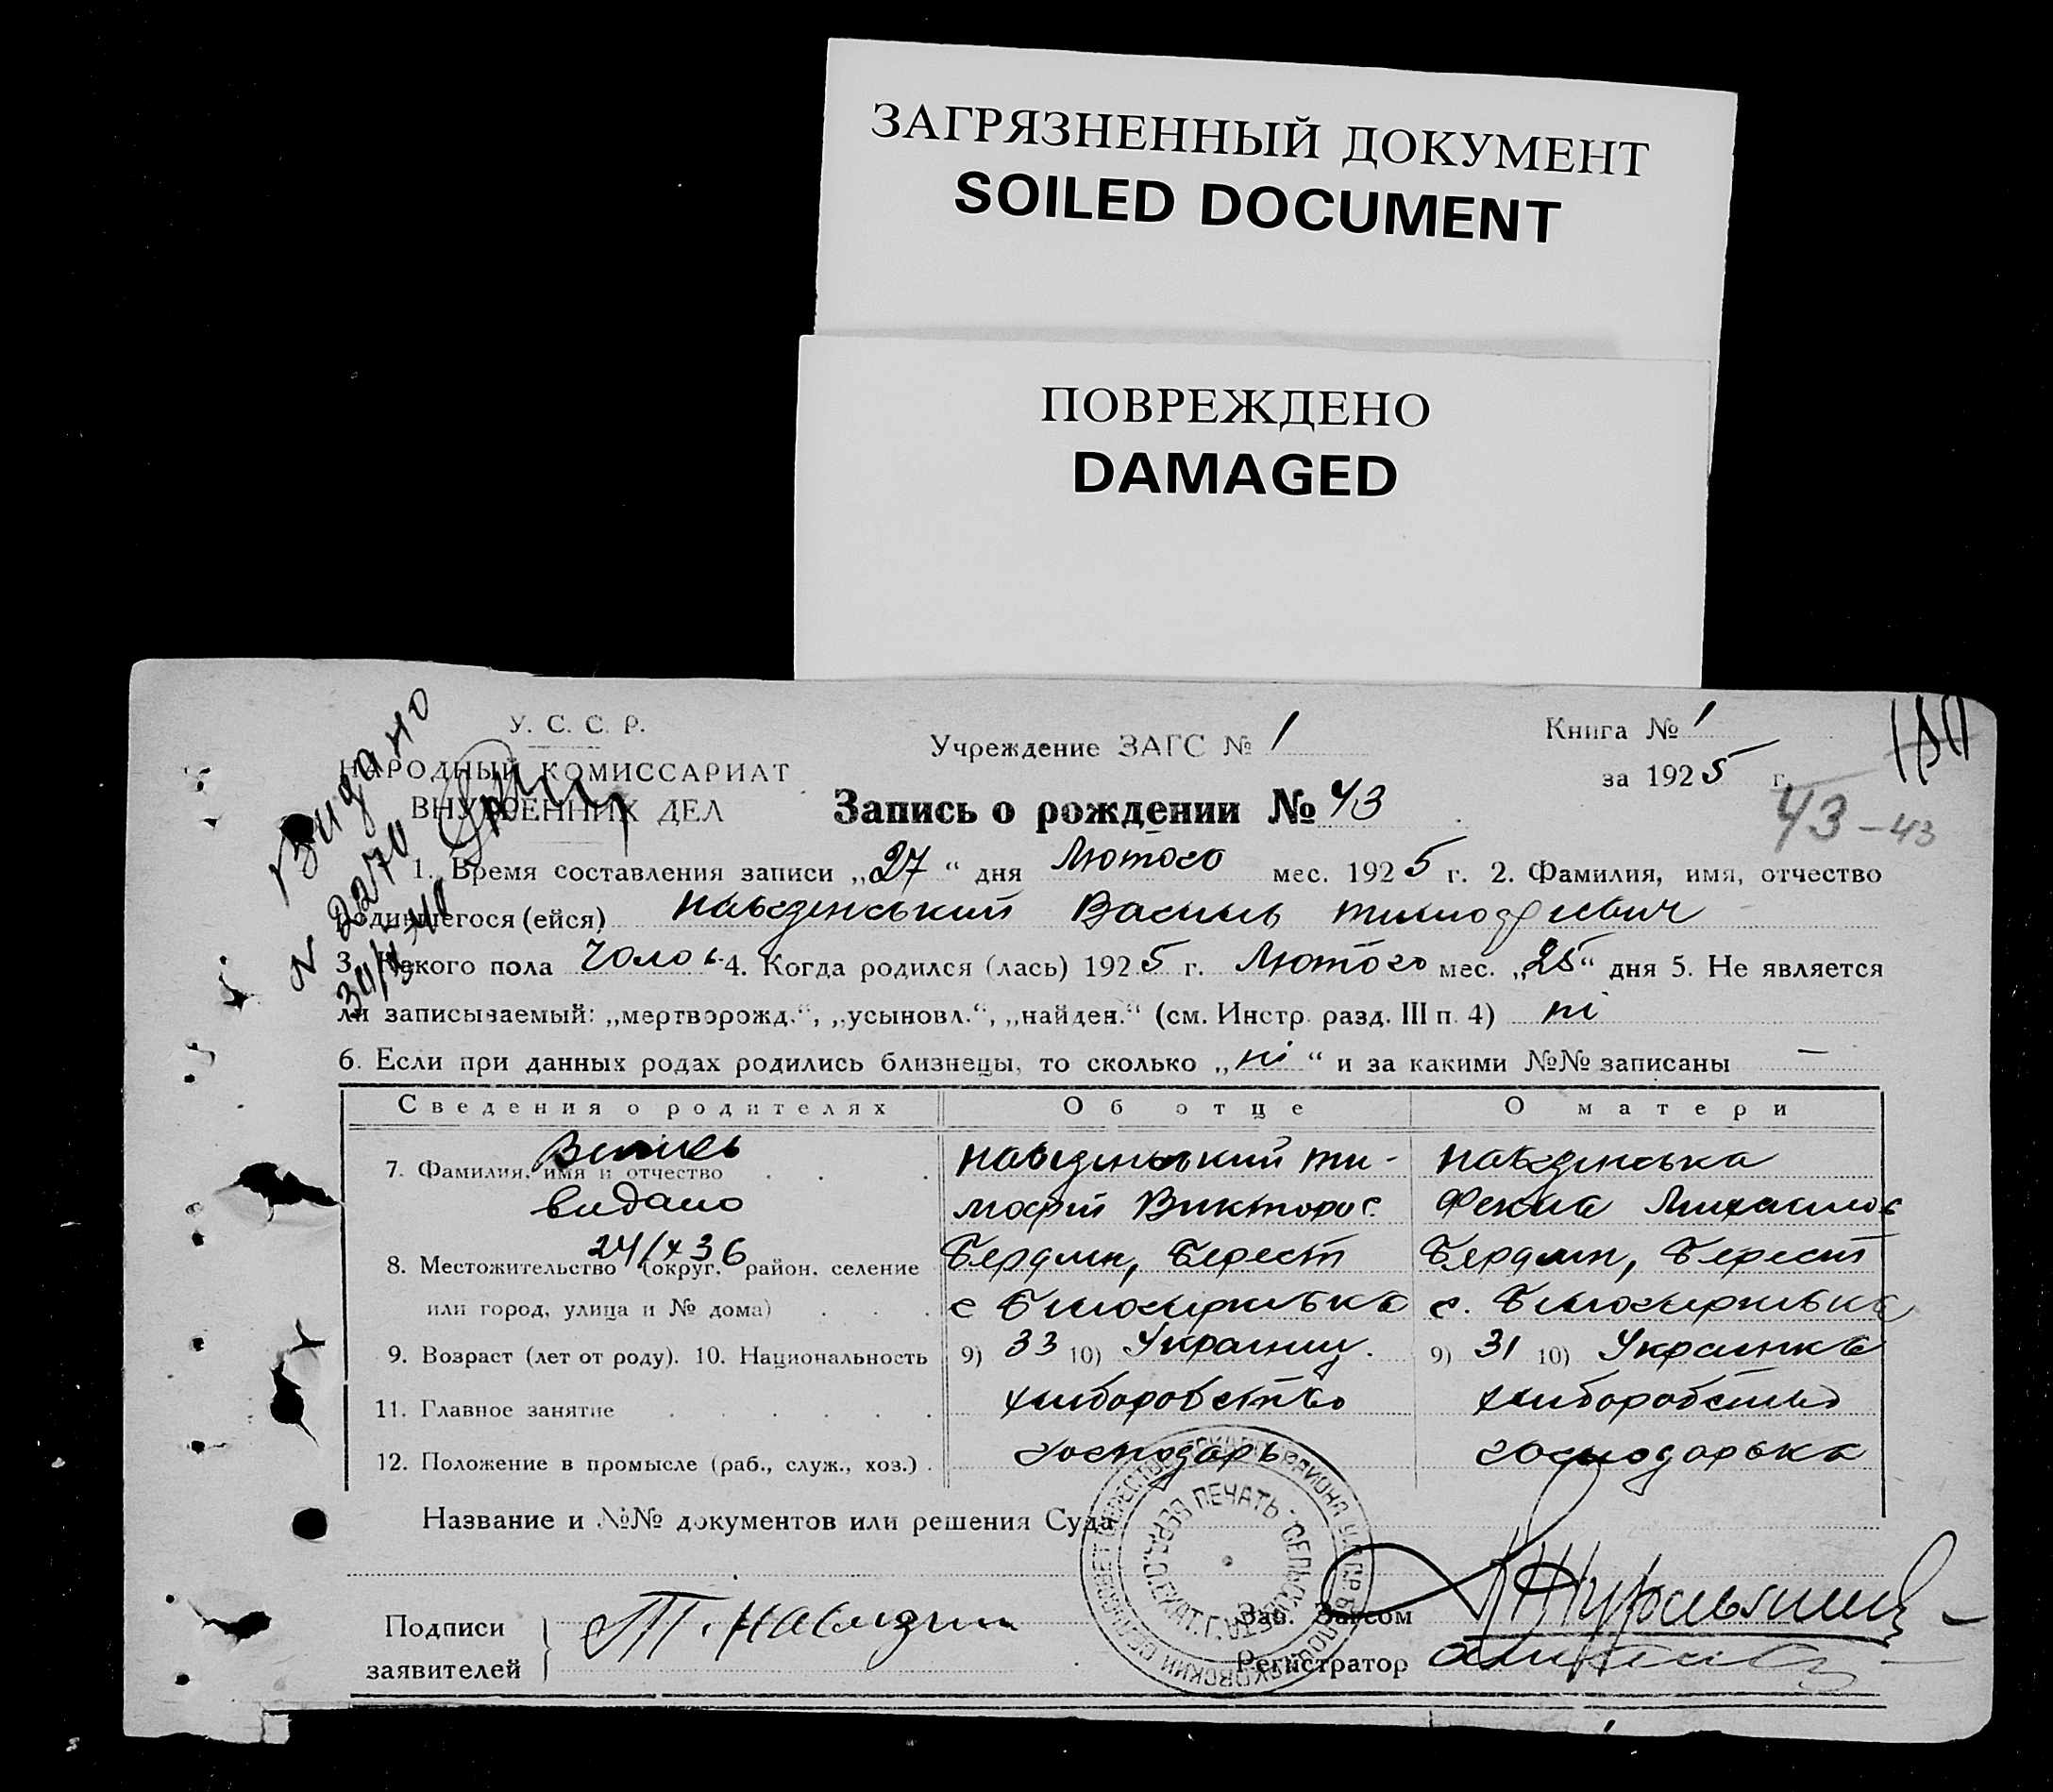 ЗАГРЯЗНЕННЫЙ ДОКУМЕНТ
SOILED DOCUMENT
ПОВРЕЖДЕНО
DAMAGED
У. С. С. Р.
НАРОДНЫЙ КОМИССАРИАТ
ВНУТРЕННИХ ДЕЛ
Видано
№ 2270
Учреждение ЗАГС № 1
Книга № 1
за 1925 г.
Запись о рождении № 43
43 – 43
1. Время составления записи „27“ дня Лютого мес. 1925 г. 2. Фамилия, имя, отчество
родившегося (ейся) Василь Тимофієвич
3. Какого пола Чолов. 4. Когда родился (лась) 1925 г. Лютого мес. „25“ дня 5. Не является
ли записываемый: „мертворожд.“, „усыновл.“, „найден.“ (см. Инстр. разд. III п. 4) ні
6. Если при данных родах родились близнецы, то сколько „ні“ и за какими №№ записаны —
Сведения о родителях Об отце О матери
7. Фамилия, имя и отчество
Витяг
видано
24/X 36
ти-
мофій Викторов.
Михайлов
8. Местожительство (округ, район, селение
или город, улица и № дома)
Бердян, Берест
Бердян, Берест
9. Возраст (лет от роду). 10. Национальность 9) 33 10) Украинец. 9) 31 10) Украинка
11. Главное занятие хлиборобство хлиборобство
12. Положение в промысле (раб., служ., хоз.) господарь господарька
Название и №№ документов или решения Суда
Подписи
заявителей
Зав. Загсом
Регистратор